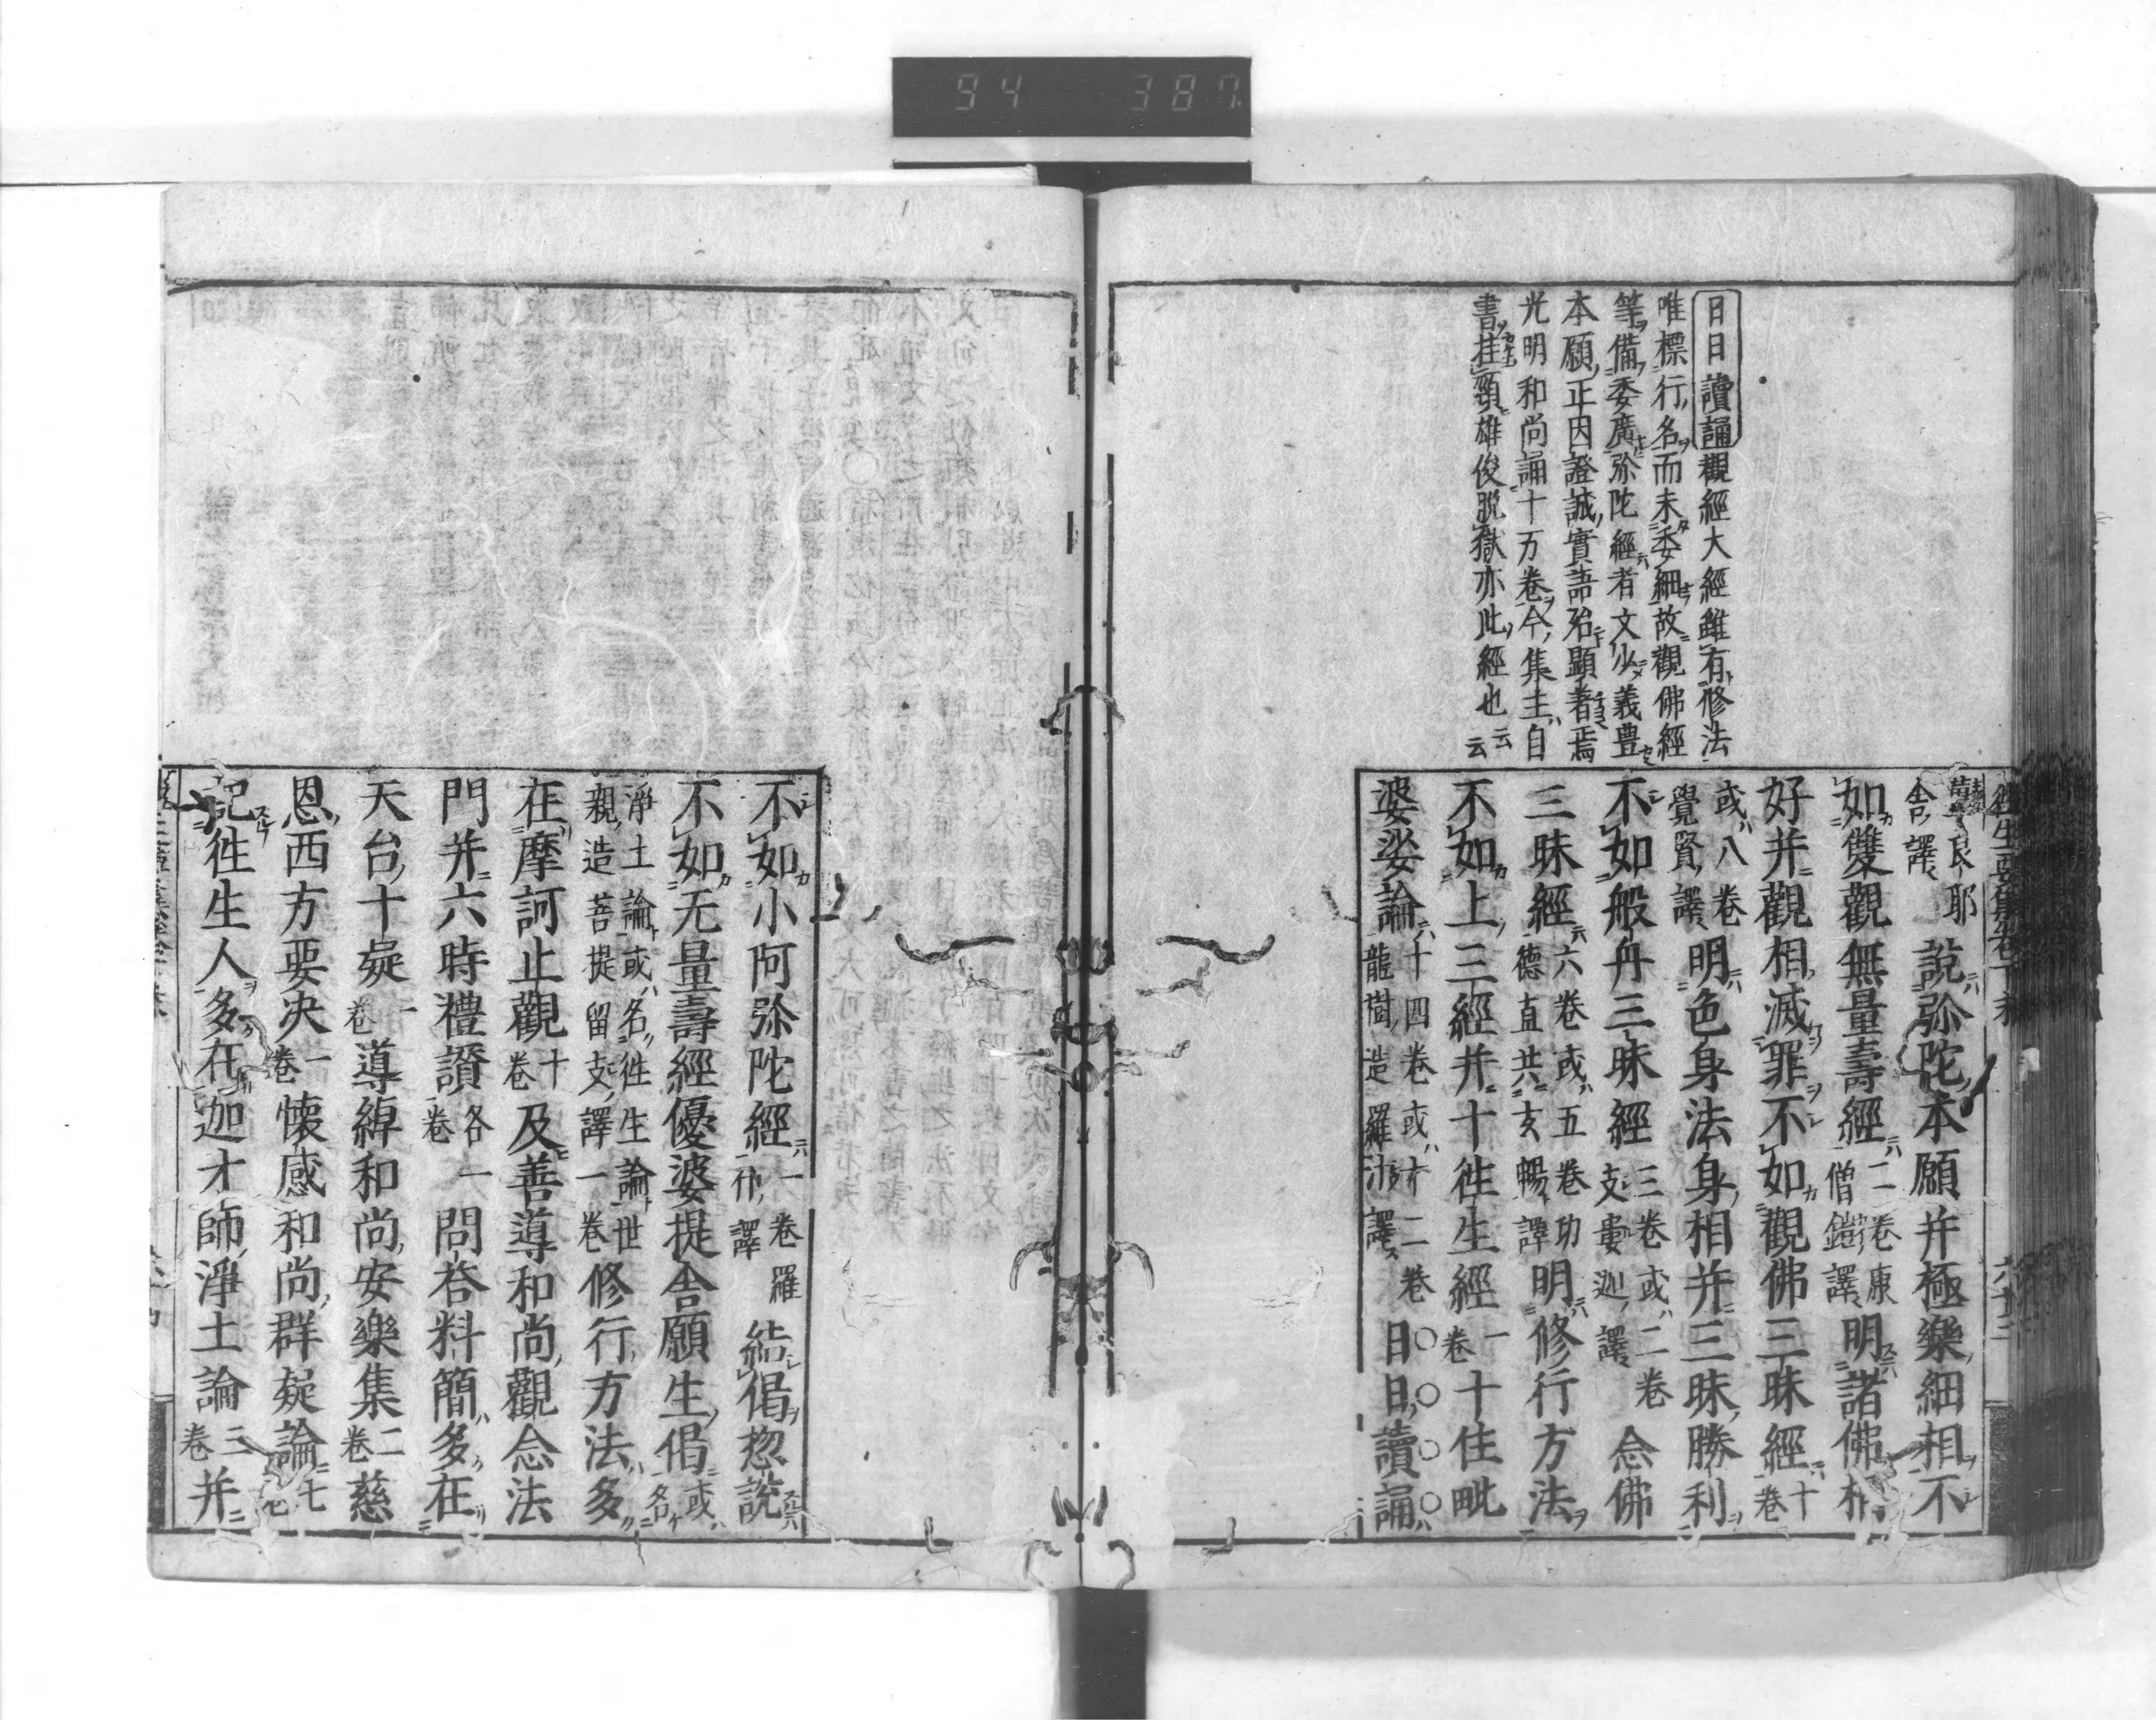 94 387
往生要集卷下末
六十三
日日讀誦觀經大經雖有修法
唯標行名而未委細故觀佛經
等備委廣弥陀經者文少義豊
本願正因證誠實語殆顯著焉
光明和尚誦十万卷今集主自
書挂頸雄俊脱獄亦此經也云云
良耶舎譯說弥陀本願并極樂細相不
如雙觀無量壽經二卷康僧鎧譯明諸佛相
好并觀相滅罪不如觀佛三昧經十卷
或八卷覺賢譯明色身法身相并三昧勝利
不如般舟三昧經三卷或二卷支婁迦譯念佛
三昧經六卷或五卷功德直共玄暢譯明修行方法
不如上三經并十往生經一卷十住毗
婆娑論十四卷或十二卷龍樹造羅汁譯日日讀誦
不如小阿弥陀經一卷羅什譯結偈惣說
不如无量壽經優婆提舎願生偈或名
淨土論或名往生論世親造菩提留支譯一卷修行方法多
在摩訶止觀十卷及善導和尚觀念法
門并六時禮讚各一卷問荅料簡多在
天台十疑一卷導綽和尚安樂集二卷慈
恩西方要決一卷懷感和尚群疑論七卷
記往生人多在迦才師淨土論三卷并